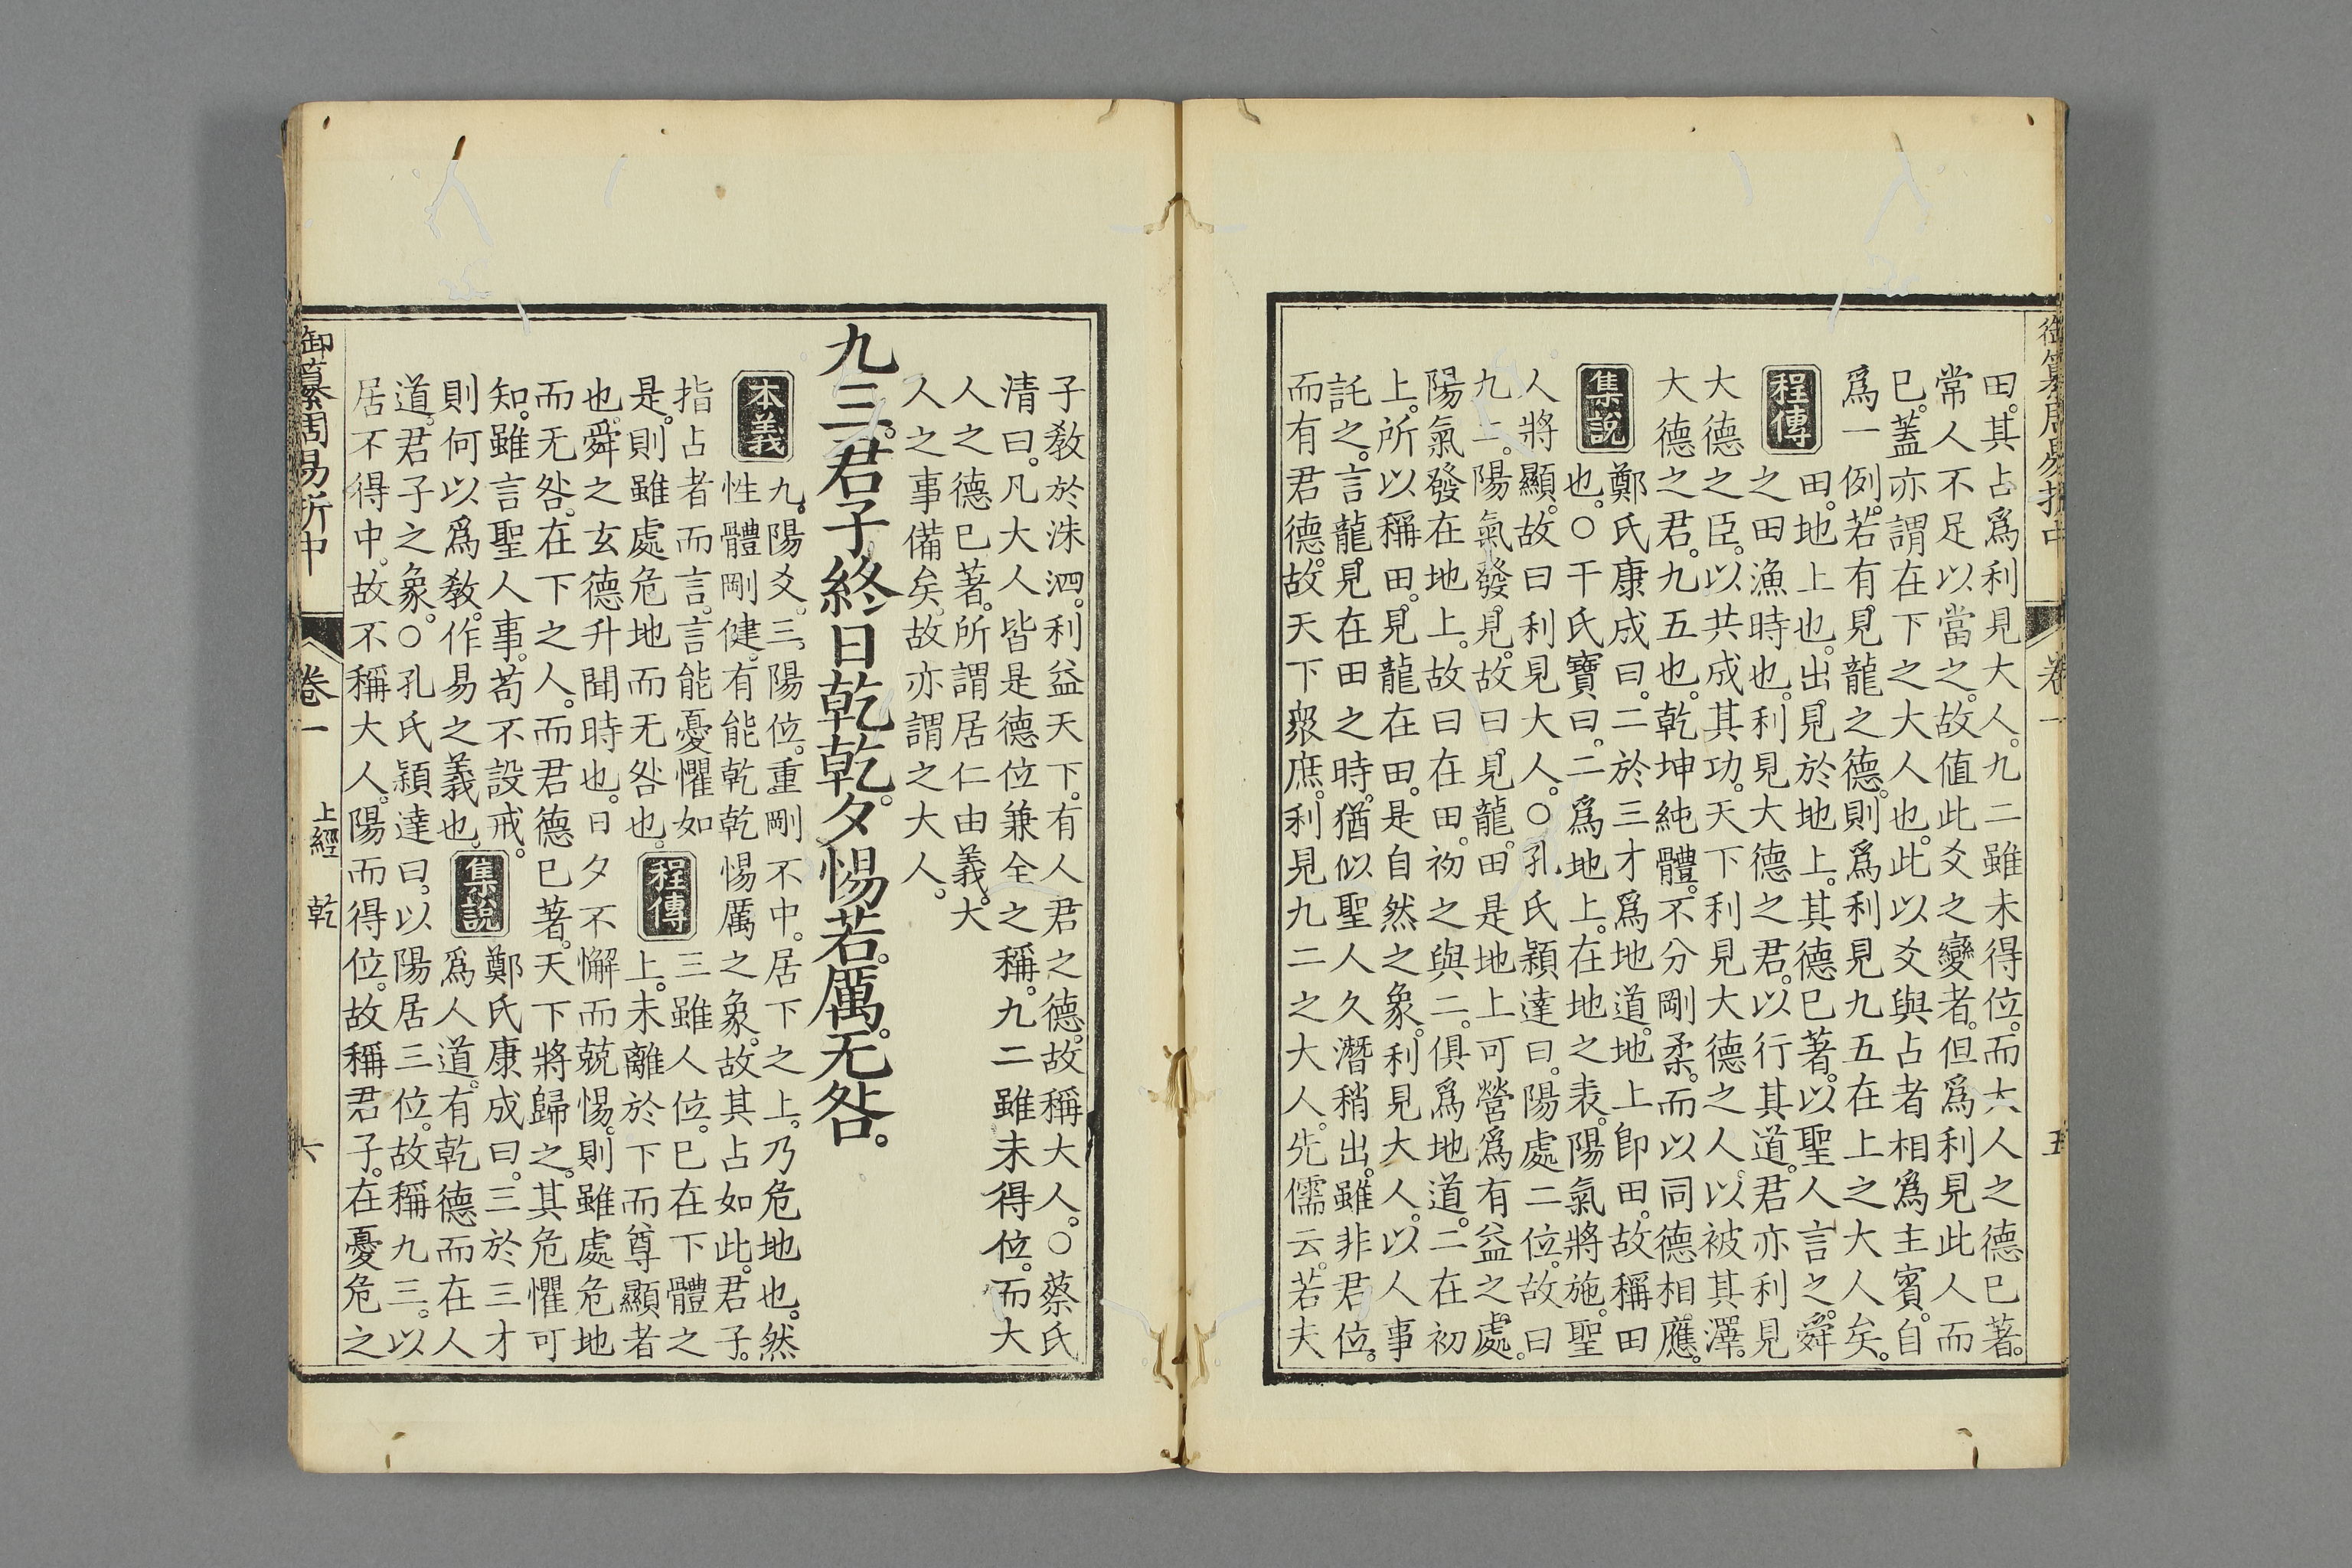 御纂周易折中 卷一 五
田。其占爲利見大人。九二雖未得位。而大人之德已著。
常人不足以當之。故值此爻之變者。但爲利見此人而
已。蓋亦謂在下之大人也。此以爻與占者相爲主賓。自
爲一例。若有見龍之德。則爲利見九五在上之大人矣。
程傳 田。地上也。出見於地上。其德已著。以聖人言之。舜
之田漁時也。利見大德之君。以行其道。君亦利見
大德之臣。以共成其功。天下利見大德之人。以被其澤。
大德之君。九五也。乾坤純體。不分剛柔。而以同德相應。
集說 鄭氏康成曰。二於三才爲地道。地上卽田。故稱田
也。○干氏寶曰。二爲地上。在地之表。陽氣將施。聖
人將顯。故曰利見大人。○孔氏穎達曰。陽處二位。故曰
九二。陽氣發見。故曰見龍。田是地上可營爲有益之處。
陽氣發在地上。故曰在田。初之與二。俱爲地道。二在初
上。所以稱田。見龍在田。是自然之象。利見大人。以人事
託之。言龍見在田之時。猶似聖人久潛稍出。雖非君位。
而有君德。故天下衆庶。利見九二之大人。先儒云。若夫
子敎於洙泗。利益天下。有人君之德。故稱大人。○蔡氏
清曰。凡大人皆是德位兼全之稱。九二雖未得位。而大
人之德已著。所謂居仁由義。大
人之事備矣。故亦謂之大人。
九三。君子終日乾乾。夕惕若。厲。无咎。
本義 九。陽爻。三。陽位。重剛不中。居下之上。乃危地也。然
性體剛健。有能乾乾惕厲之象。故其占如此。君子。
指占者而言。言能憂懼如
是。則雖處危地而无咎也。
程傳 三雖人位。已在下體之
上。未離於下而尊顯者
也。舜之玄德升聞時也。日夕不懈而兢惕。則雖處危地
而无咎。在下之人。而君德已著。天下將歸之。其危懼可
知。雖言聖人事。苟不設戒。
則何以爲敎。作易之義也。
集說 鄭氏康成曰。三於三才
爲人道。有乾德而在人
道。君子之象。○孔氏穎達曰。以陽居三位。故稱九三。以
居不得中。故不稱大人。陽而得位。故稱君子。在憂危之
御纂周易折中 卷一 上經 乾 六